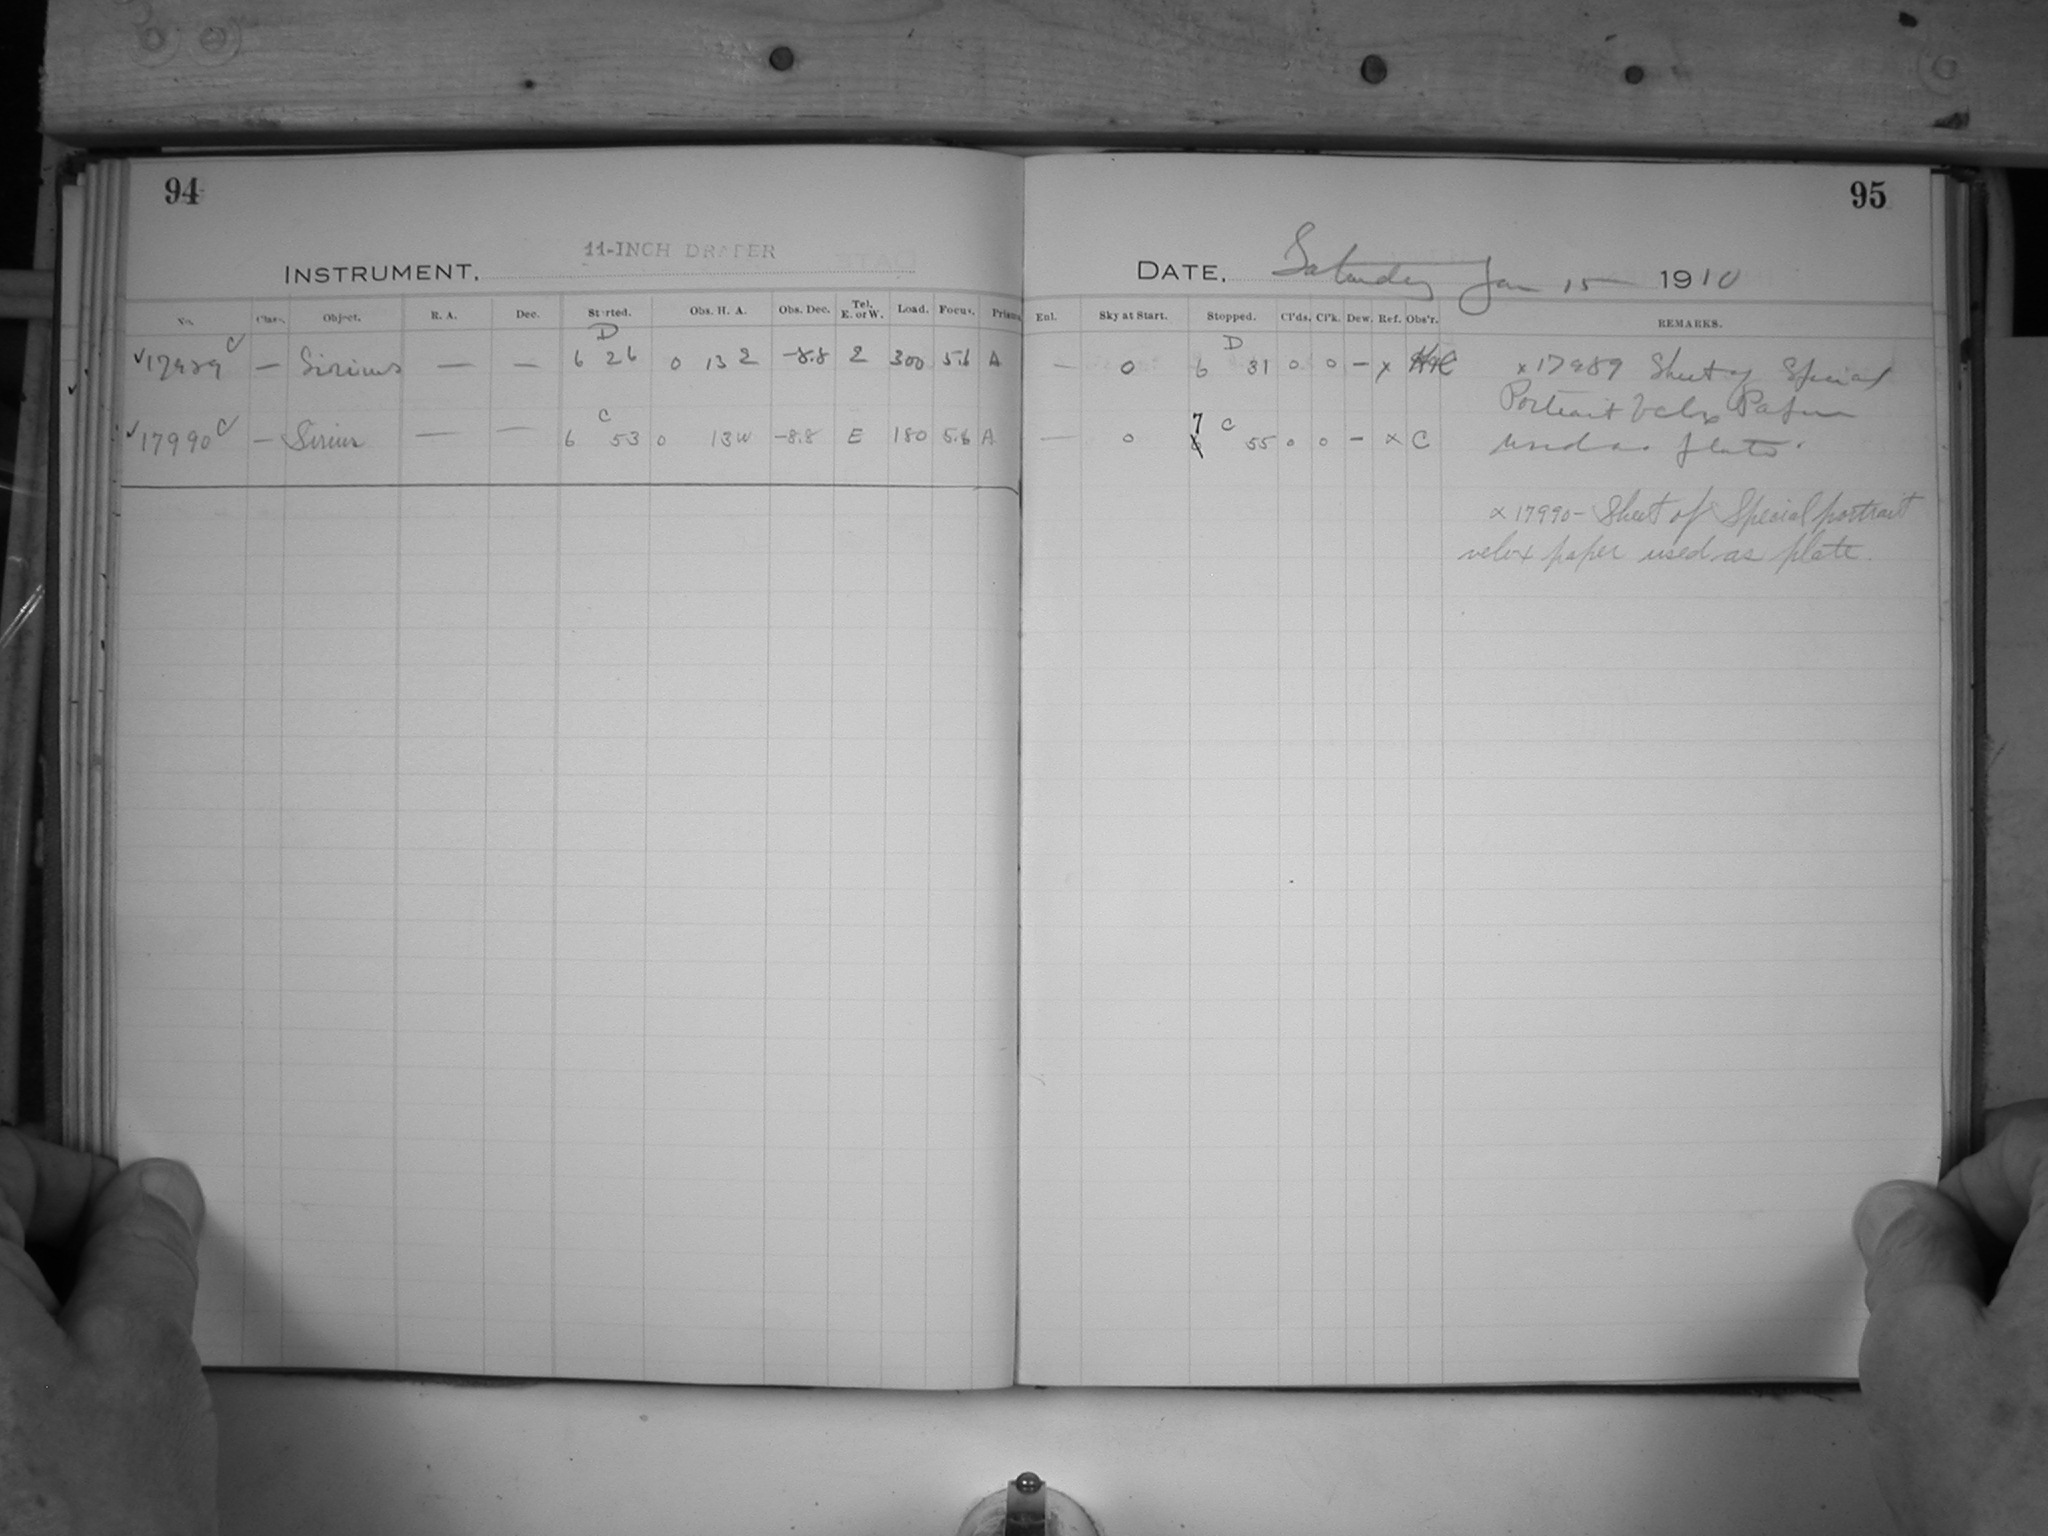 94
95
11-INCH DRAPER
INSTRUMENT.
DATE. Saturday Jan 15 1910
No. Class. Object. R. A. Dec. Started. Obs. H. A. Obs. Dec. Tel. E. or W. Load. Focus. Prism. Enl. Sky at Start. Stopped. Cl'ds. Cl'k. Dew. Ref. Obs'r. REMARKS.
D D
✓17989 C — Sirius — — 6 26 0 13 E -8.8 E 300 5.6 A — 0 6 31 0 0 - x x 17989 Sheet of Special
Portrait Velox Paper
C 7 C
✓17990 C — Sirius — — 6 53 0 13 W -8.8 E 180 5.6 A — 0 55 0 0 - x C used as plate.
x 17990 - Sheet of Special portrait
velox paper used as plate.